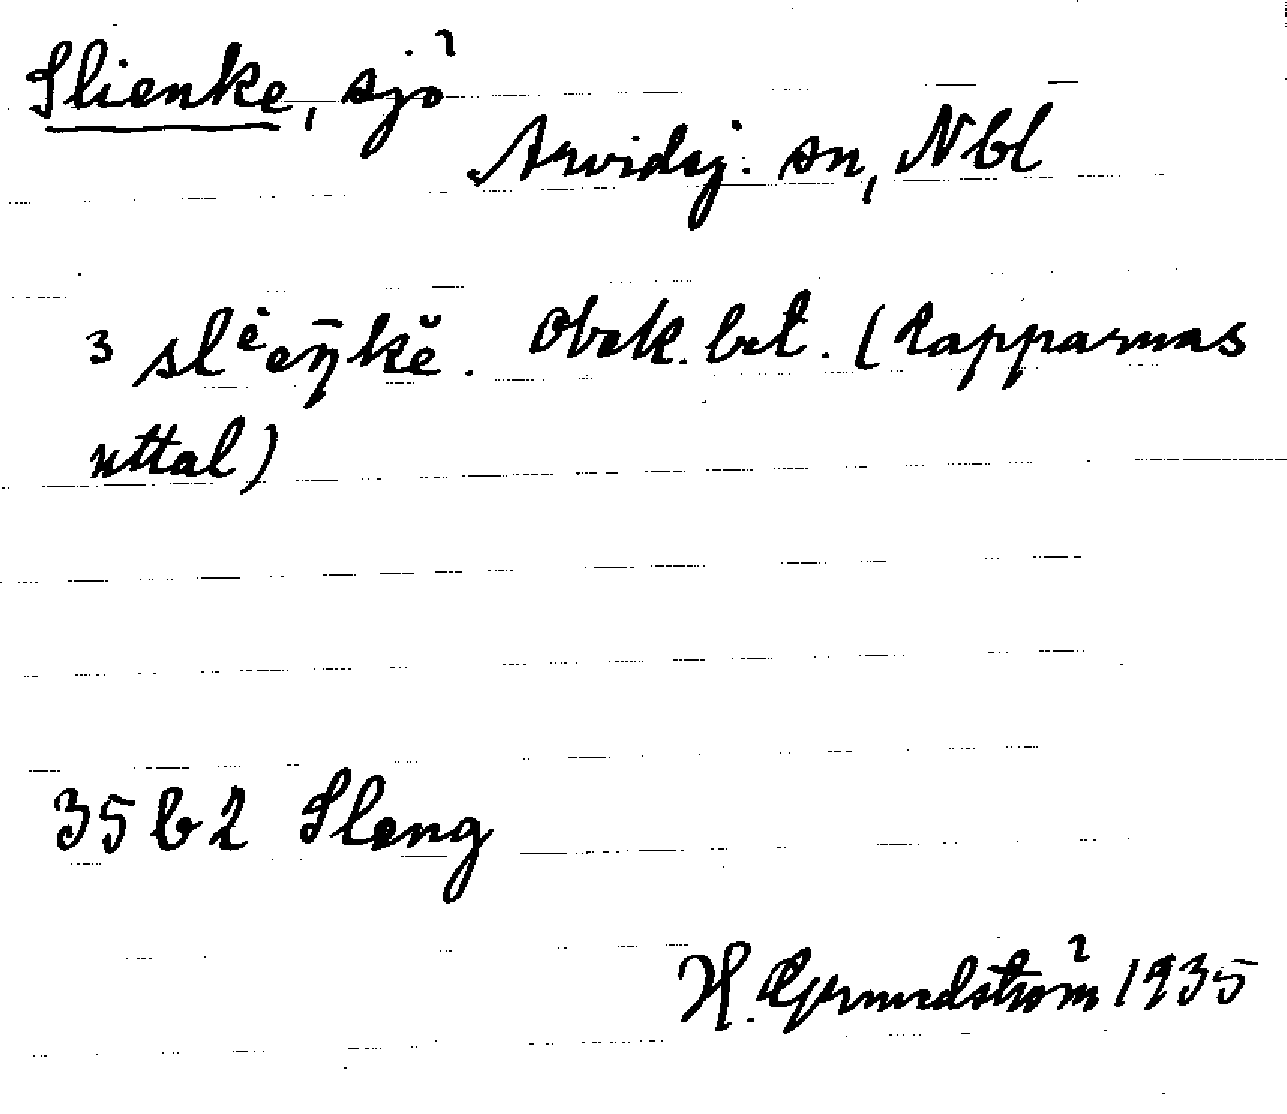 Slienke, sjö
Arvidsj. sn, Nbl
3 slėēŋ̄kĕ. Obek. bet. (lapparnas
uttal)
35 b 2 Sleng
H. Grundström 1935